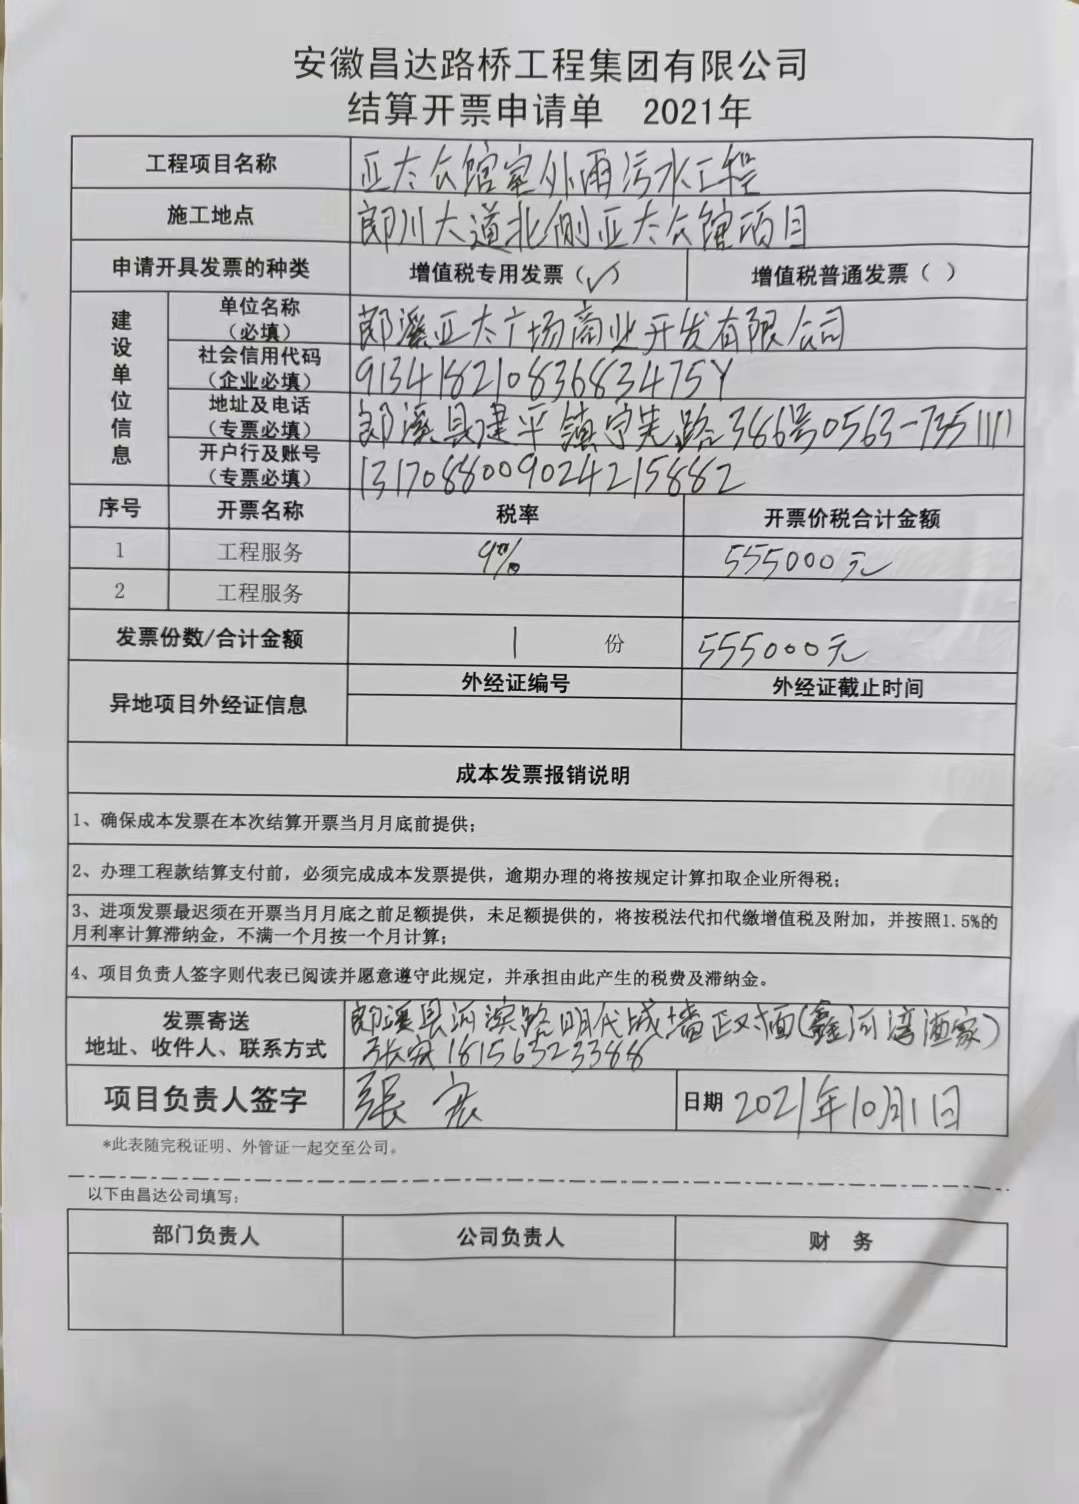 安徽昌达路桥工程集团有限公司
结算开票申请单 2021年
工程项目名称 亚太公馆室外雨污水工程
施工地点 郎川大道北侧亚太公馆项目
申请开具发票的种类 增值税专用发票（✓） 增值税普通发票（ ）
建设单位信息
单位名称（必填） 郎溪亚太广场商业开发有限公司
社会信用代码（企业必填） 91341821083683475Y
地址及电话（专票必填） 郎溪县建平镇宁先路386号0563-7351111
开户行及账号（专票必填） 1317088009024215882
序号 开票名称 税率 开票价税合计金额
1 工程服务 9% 555000元
2 工程服务
发票份数/合计金额 1 份 555000元
异地项目外经证信息 外经证编号 外经证截止时间
成本发票报销说明
1、确保成本发票在本次结算开票当月月底前提供；
2、办理工程款结算支付前，必须完成成本发票提供，逾期办理的将按规定计算扣取企业所得税；
3、进项发票最迟须在开票当月月底之前足额提供，未足额提供的，将按税法代扣代缴增值税及附加，并按照1.5%的
月利率计算滞纳金，不满一个月按一个月计算；
4、项目负责人签字则代表已阅读并愿意遵守此规定，并承担由此产生的税费及滞纳金。
发票寄送
地址、收件人、联系方式
郎溪县河滨路明代城墙正对面（鑫河湾酒家）
张 18156323388
项目负责人签字 張 日期 2021年10月1日
*此表随完税证明、外管证一起交至公司。
以下由昌达公司填写：
部门负责人 公司负责人 财 务